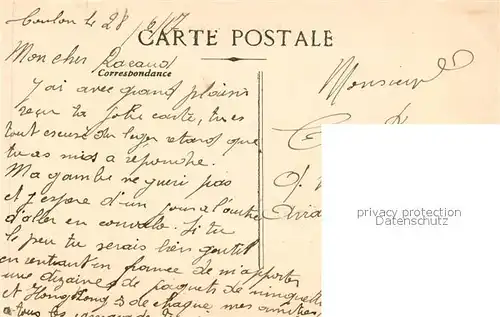 Toulon le 28/6/17
CARTE POSTALE
Mon cher Racaud
Correspondance
Monsieur
J'ai avec grand plaisir
reçu ta jolie carte, tu es
tout excusé du léger retard que
tu as mis a répondre.
Ma gambe ne gueri pas
et j'espere d'un jour a l'autre
d'aller en convalo. Si tu
le peu tu serais bien gentil
en rentrant en france de m'apporter
une dizaine de paquets de
et Hong Kong de chaque mes amitiés
a tous les
privacy protection
Datenschutz